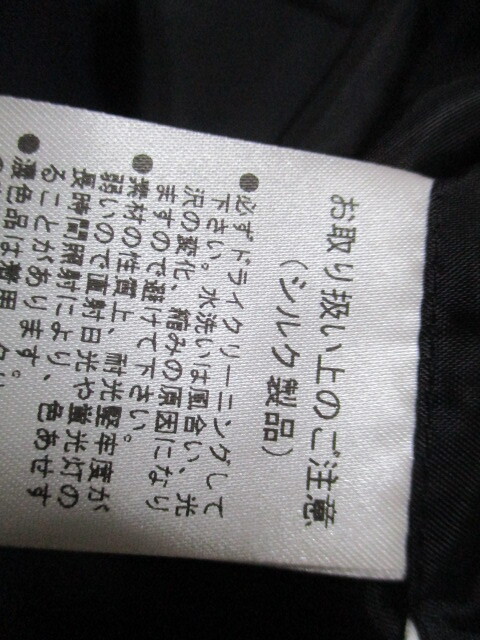 お取り扱い上のご注意
（シルク製品）
●必ずドライクリーニングして
下さい。水洗いは風合い、光
沢の変化、縮みの原因になり
ますので避けて下さい。
●素材の性質上、耐光堅牢度が
弱いので直射日光や蛍光灯の
長時間照射により、色あせす
ることがあります。
●濃色品は着用